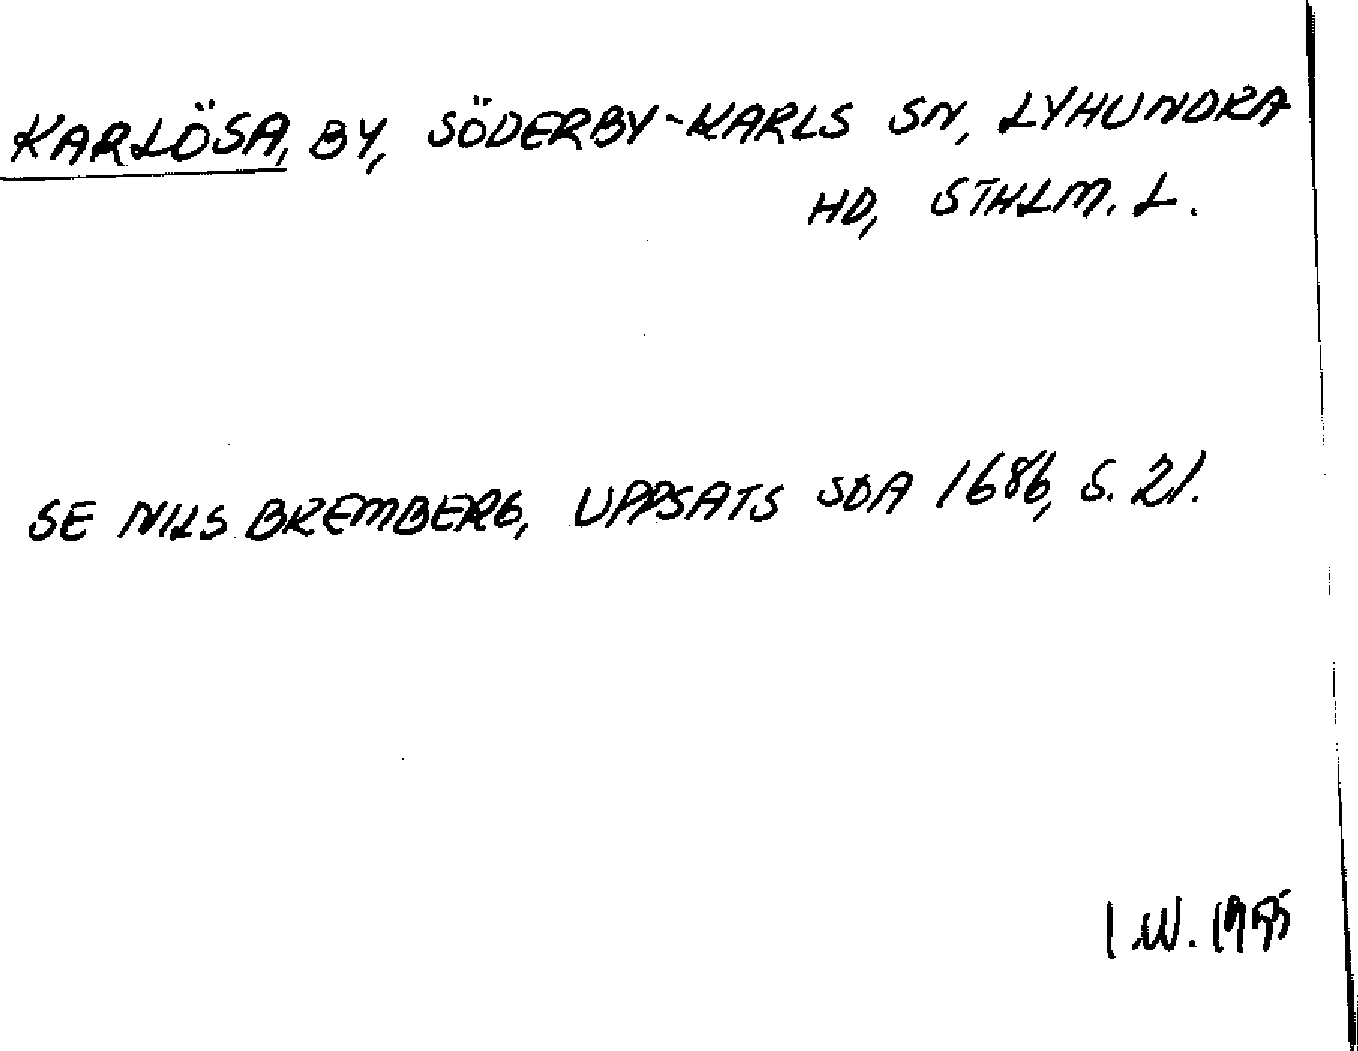 KARLÖSA, BY, SÖDERBY-KARLS SN, LYHUNDRA
HD, STHLM. L.
SE NILS BREMBERG, UPPSATS SOA 1686, S. 21.
I W. 1975